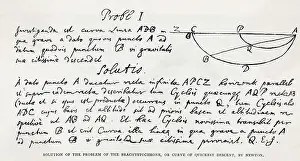 Probl I
Investiganda est curva Linea ADB in
qua grave a dato quovis puncto A ad
datum quodvis punctum B vi gravitatis
suæ citissime descendet
Solutio.
A dato puncto A ducatur recta infinita APCZ horizonti parallela
et super eadem recta describatur tum Cyclois quæcunque AQP rectæ AB
(ducta et si opus est producta) occurrens in puncto Q, tum Cyclois alia
ADC cujus basis et altitudo sit ad prioris basem et altitudinem re-
spective ut AB ad AQ. Et hæc Cyclois novissima transibit per
punctum B et erit Curva illa linea in qua grave a puncto A
ad punctum B vi gravitatis suæ citissime perveniet. Q.E.I.
Z
C
P
A
Q
B
D
SOLUTION OF THE PROBLEM OF THE BRACHYSTOCHRONE, OR CURVE OF QUICKEST DESCENT, BY NEWTON.